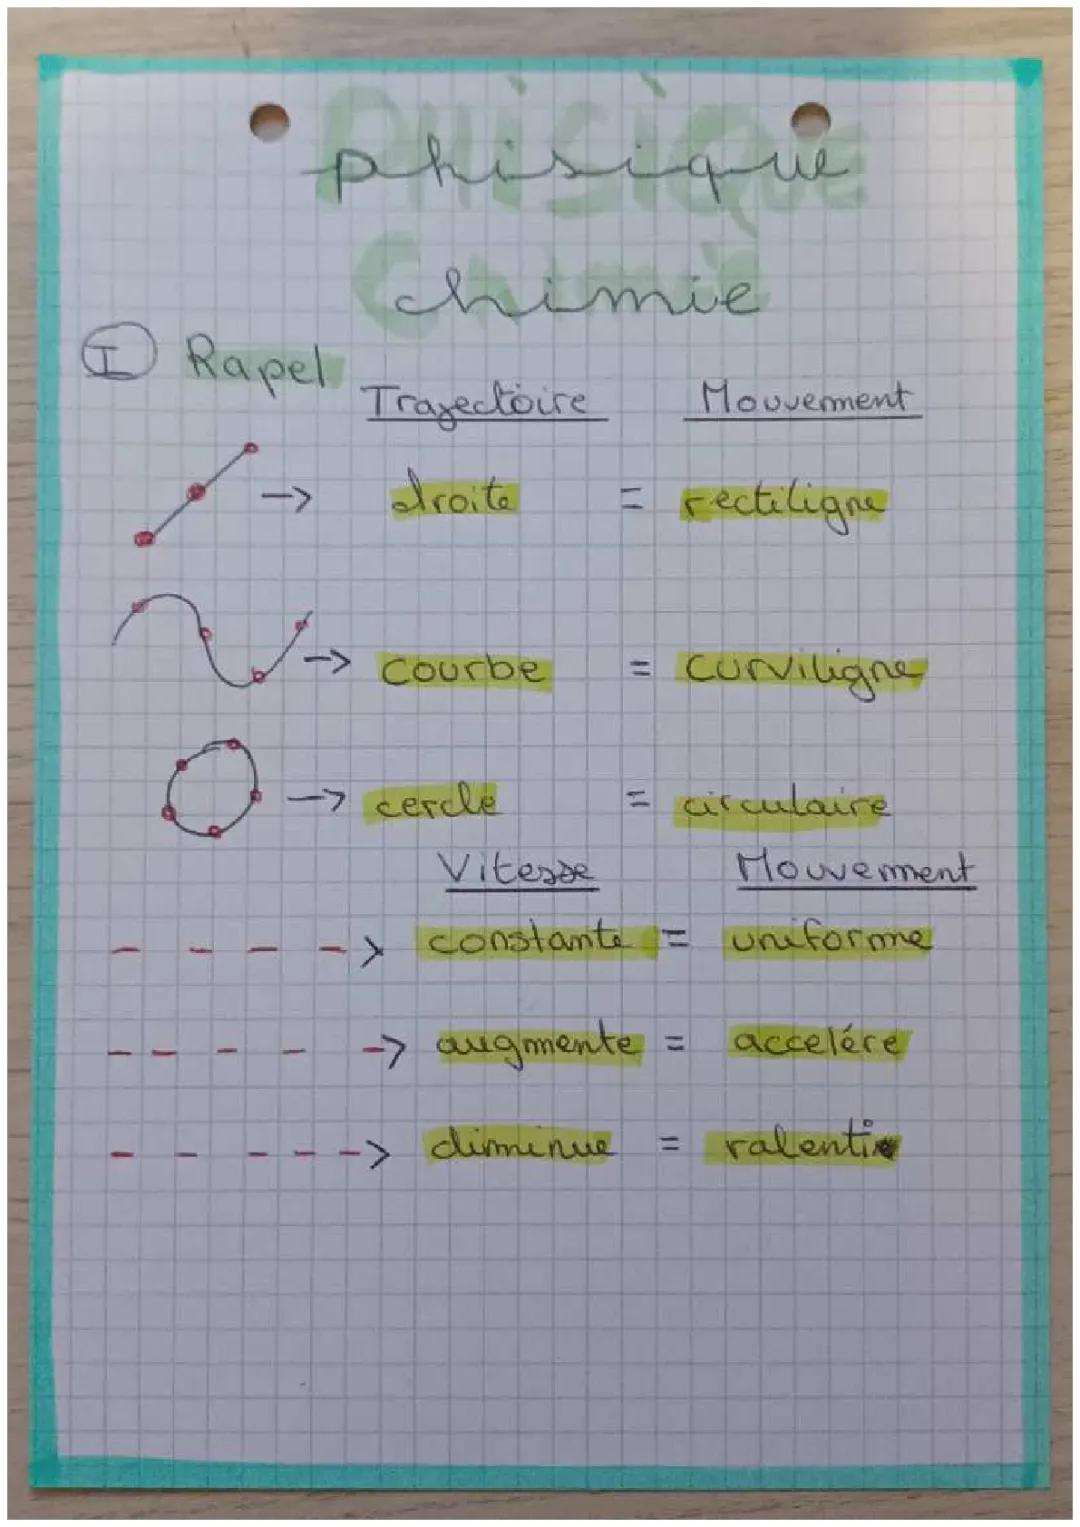 phisique
chimie
I Rapel
Trajectoire Mouvement
→ droite = rectiligne
→ courbe = curviligne
→ cercle = circulaire
Vitesse Mouvement
→ constante = uniforme
→ augmente = accelére
→ diminue = ralenti